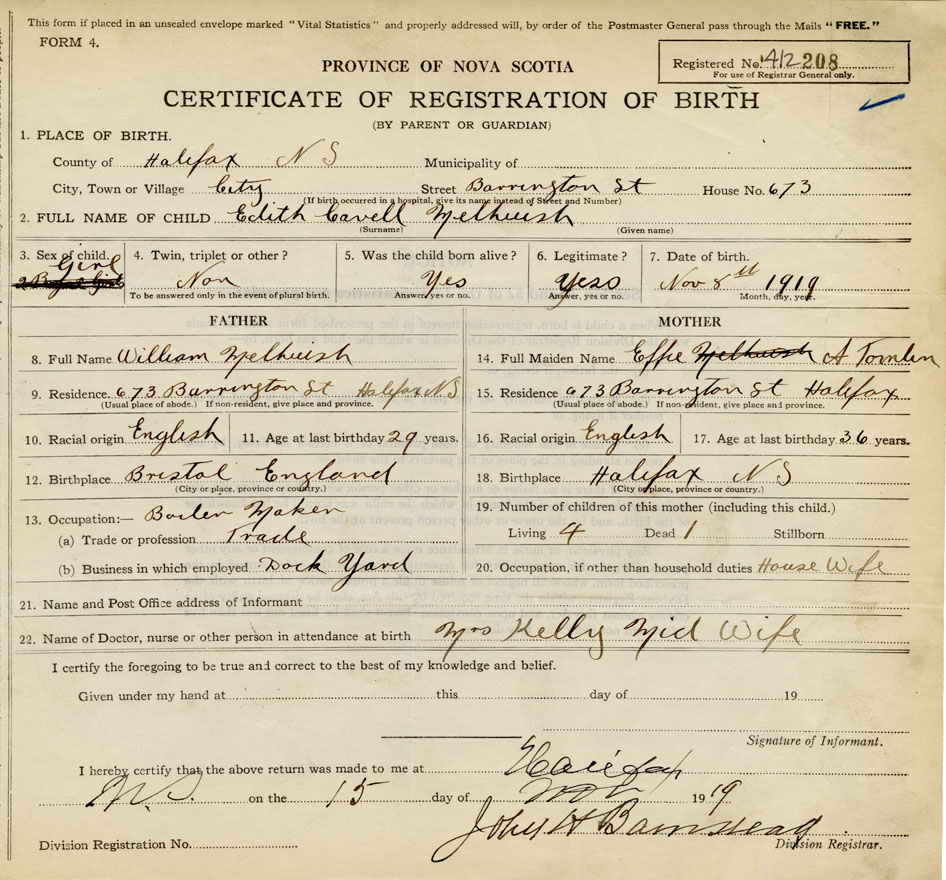 This form if placed in an unsealed envelope marked "Vital Statistics" and properly addressed will, by order of the Postmaster General pass through the Mails "FREE."
FORM 4.
Registered No. 412 208
For use of Registrar General only.
PROVINCE OF NOVA SCOTIA
CERTIFICATE OF REGISTRATION OF BIRTH
(BY PARENT OR GUARDIAN)
1. PLACE OF BIRTH.
County of Halifax N S Municipality of
City, Town or Village City Street Barrington St House No. 673
(If birth occurred in a hospital, give its name instead of Street and Number)
2. FULL NAME OF CHILD Edith Cavell Melhuish
(Surname) (Given name)
3. Sex of child. Girl 4. Twin, triplet or other? Non 5. Was the child born alive? Yes 6. Legitimate? Yess 7. Date of birth. Nov 8st 1919
To be answered only in the event of plural birth. Answer, yes or no. Answer, yes or no. Month, day, year.
FATHER MOTHER
8. Full Name William Melhuish 14. Full Maiden Name Effie Melhuish A Tomlin
9. Residence. 673 Barrington St Halifax N S 15. Residence 673 Barrington St Halifax
(Usual place of abode.) If non-resident, give place and province. (Usual place of abode.) If non-resident, give place and province.
10. Racial origin English 11. Age at last birthday 29 years. 16. Racial origin English 17. Age at last birthday 36 years.
12. Birthplace Bristol England 18. Birthplace Halifax N S
(City or place, province or country.) (City or place, province or country.)
13. Occupation:— Boiler Maker 19. Number of children of this mother (including this child.)
(a) Trade or profession Trade Living 4 Dead 1 Stillborn
(b) Business in which employed Dock Yard 20. Occupation, if other than household duties House Wife
21. Name and Post Office address of Informant
22. Name of Doctor, nurse or other person in attendance at birth Mrs Kelly Mid Wife
I certify the foregoing to be true and correct to the best of my knowledge and belief.
Given under my hand at this day of 19
Signature of Informant.
I hereby certify that the above return was made to me at Halifax
N.S. on the 15 day of Nov 1919
John H Barnstead
Division Registration No. Division Registrar.